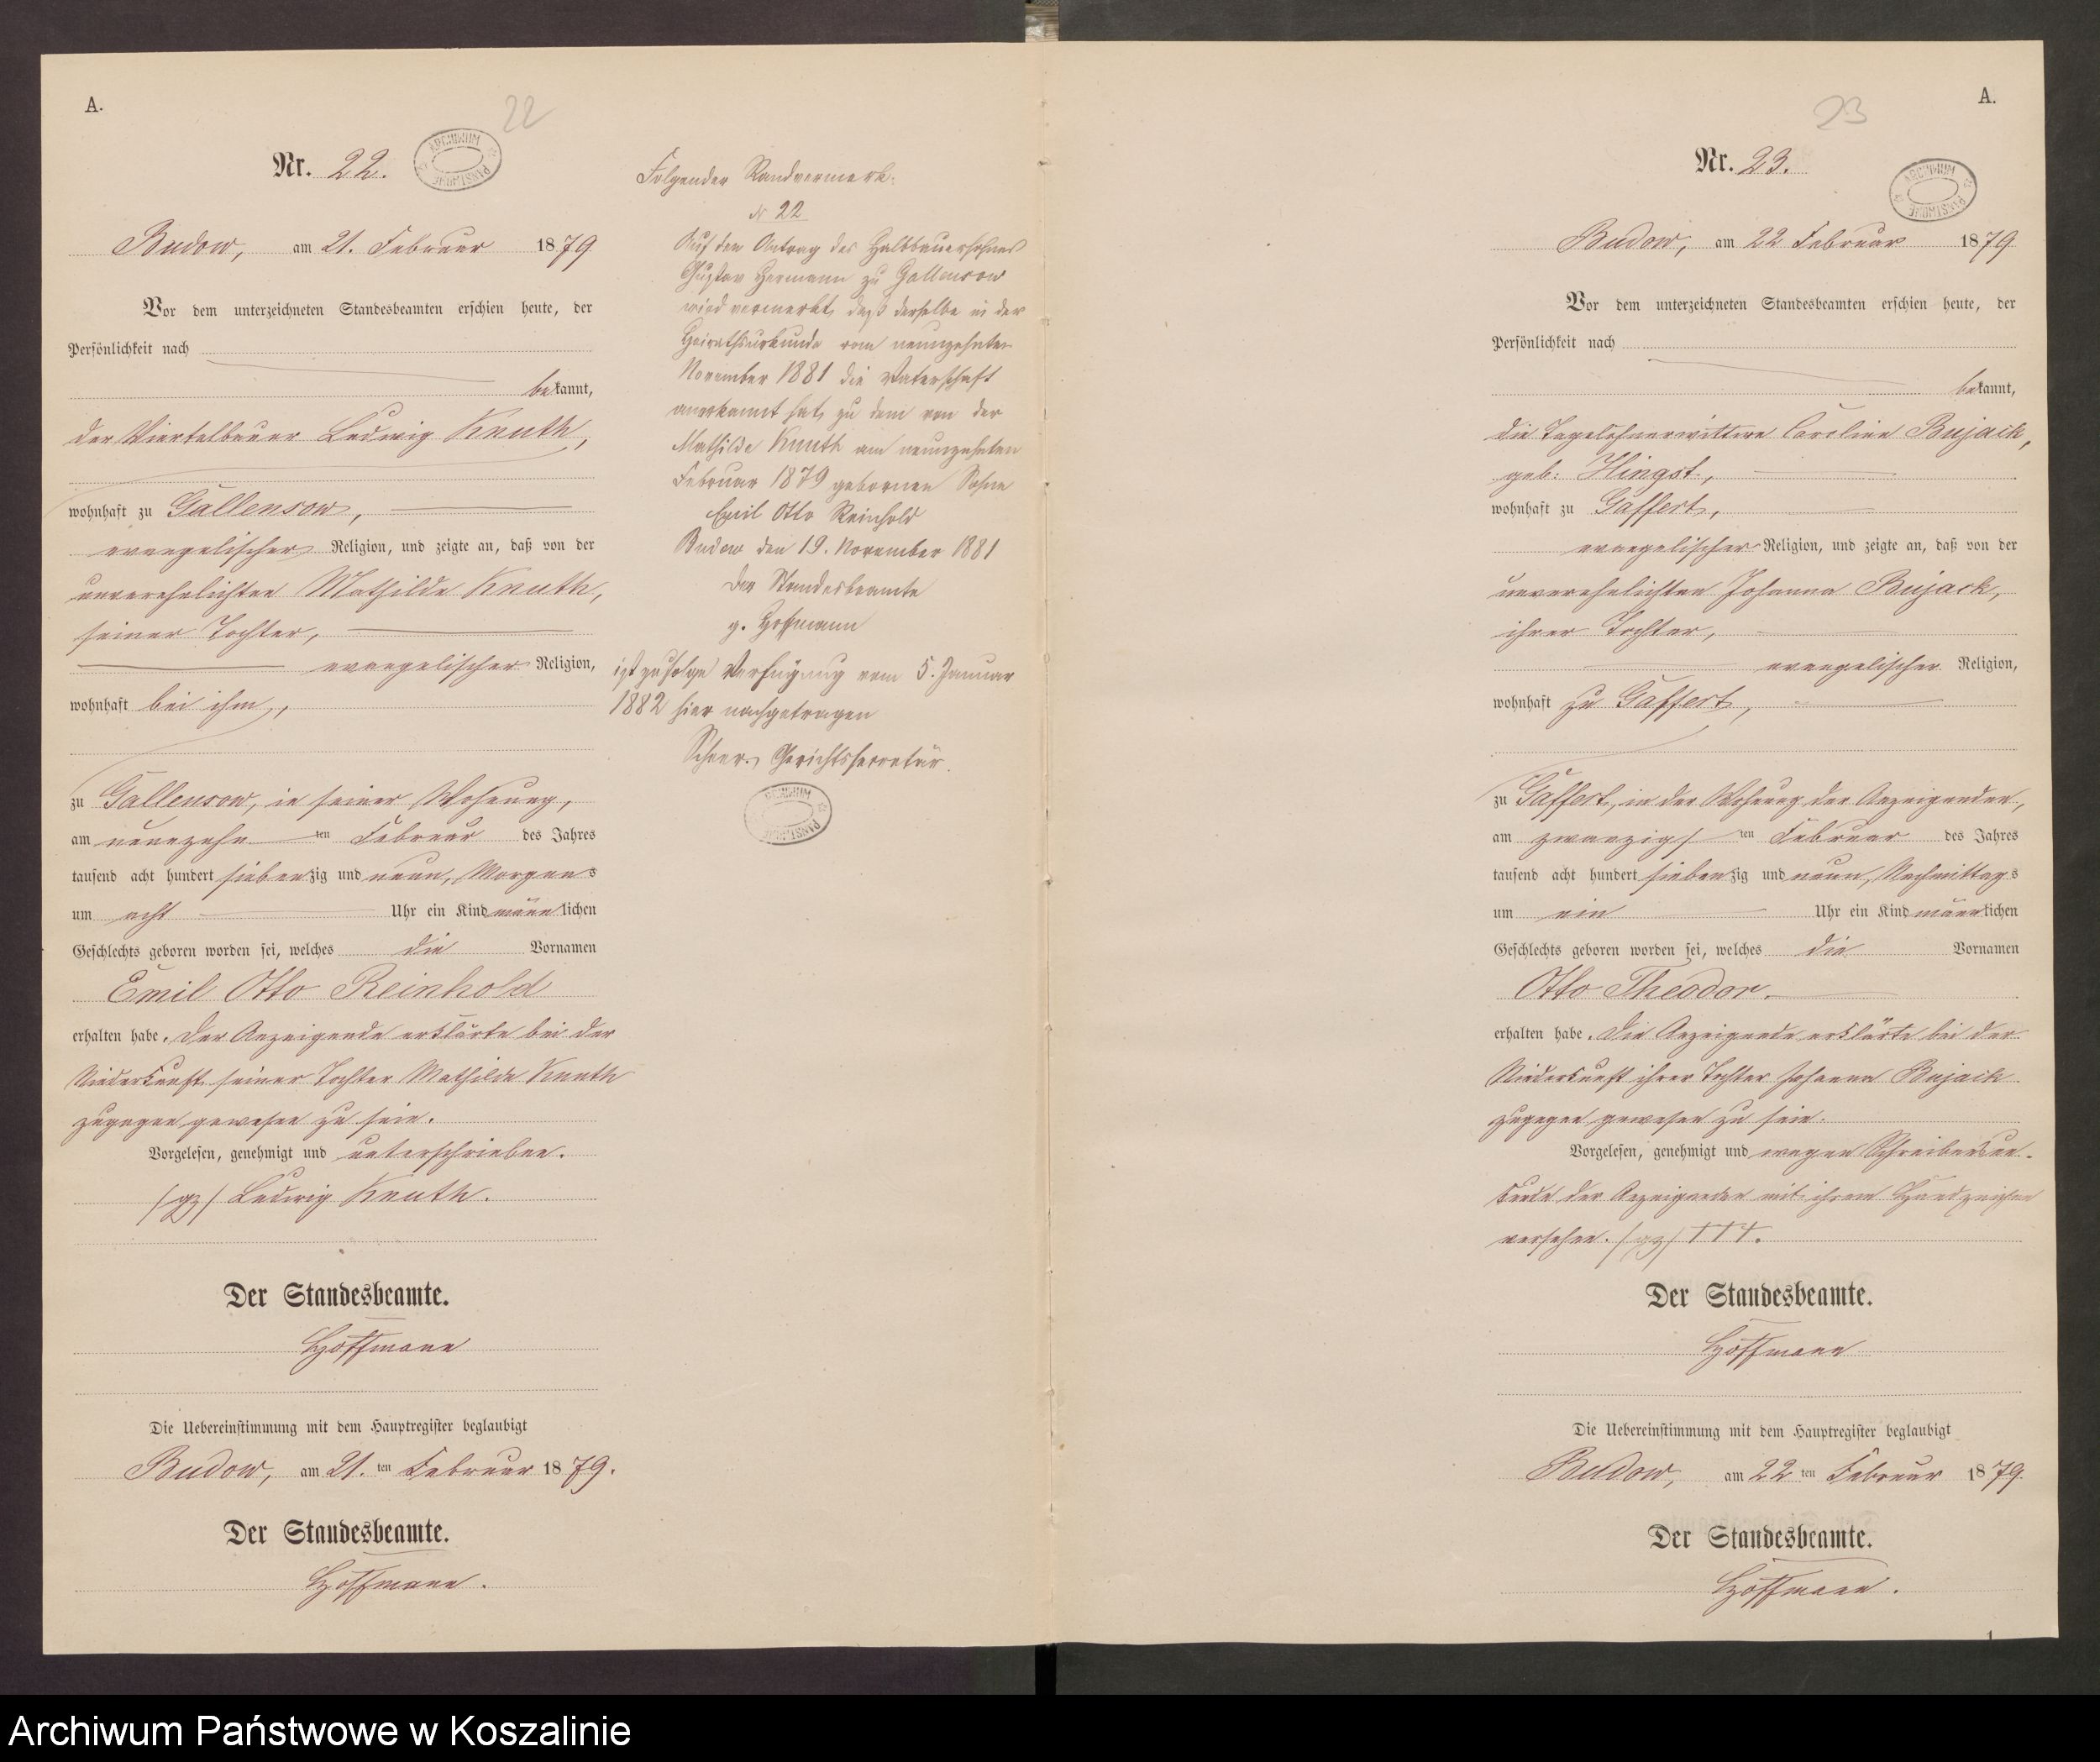 A.
22
Nr. 22.
ARCHIWUM PAŃSTWOWE
Budow, am 21. Februar 1879
Vor dem unterzeichneten Standesbeamten erschien heute, der
Persönlichkeit nach
bekannt,
der Viertelbauer Ludwig Knuth,
wohnhaft zu Gallensow,
evangelischer Religion, und zeigte an, daß von der
unverehelichten Mathilde Knuth,
seiner Tochter,
evangelischer Religion,
wohnhaft bei ihm,
zu Gallensow, in seiner Wohnung,
am neunzehn ten Februar des Jahres
tausend acht hundert siebenzig und neun, Morgens
um acht Uhr ein Kind männlichen
Geschlechts geboren worden sei, welches die Vornamen
Emil Otto Reinhold
erhalten habe. Der Anzeigende erklärte bei der
Niederkunft seiner Tochter Mathilde Knuth
zugegen gewesen zu sein.
Vorgelesen, genehmigt und unterschrieben.
(gz) Ludwig Knuth.
Der Standesbeamte.
Hoffmann
Die Uebereinstimmung mit dem Hauptregister beglaubigt
Budow, am 21. ten Februar 1879.
Der Standesbeamte.
Hoffmann.
Folgender Randvermerk:
N 22
Auf den Antrag des Halbbauersohnes
Gustav Hermann zu Gallensow
wird vermerkt, daß derselbe in der
Heirathsurkunde vom neunzehnten
November 1881 die Vaterschaft
anerkannt hat, zu dem von der
Mathilde Knuth am neunzehnten
Februar 1879 gebornen Sohne
Emil Otto Reinhold
Budow den 19. November 1881
Der Standesbeamte
g. Hoffmann
ist zufolge Verfügung vom 5. Januar
1882 hier nachgetragen
Gerichtssecretär.
ARCHIWUM PAŃSTWOWE
A.
23
Nr. 23.
ARCHIWUM PAŃSTWOWE
Budow, am 22 Februar 1879
Vor dem unterzeichneten Standesbeamten erschien heute, der
Persönlichkeit nach
bekannt,
die Tagelöhnerwittwe Caroline Bujack,
geb: Hingst,
wohnhaft zu Gaffert,
evangelischer Religion, und zeigte an, daß von der
unverehelichten Johanna Bujack,
ihrer Tochter,
evangelischer Religion,
wohnhaft zu Gaffert,
zu Gaffert, in der Wohnung der Anzeigenden,
am zwanzigs ten Februar des Jahres
tausend acht hundert siebenzig und neun, Nachmittags
um ein Uhr ein Kind männlichen
Geschlechts geboren worden sei, welches die Vornamen
Otto Theodor.
erhalten habe. Die Anzeigende erklärte bei der
Niederkunft ihrer Tochter Johanna Bujack
zugegen gewesen zu sein.
Vorgelesen, genehmigt und wegen Schreibensun-
kunde der Anzeigenden mit ihrem Handzeichen
versehen. (gz) +++.
Der Standesbeamte.
Hoffmann
Die Uebereinstimmung mit dem Hauptregister beglaubigt
Budow, am 22 ten Februar 1879.
Der Standesbeamte.
Hoffmann.
Archiwum Państwowe w Koszalinie